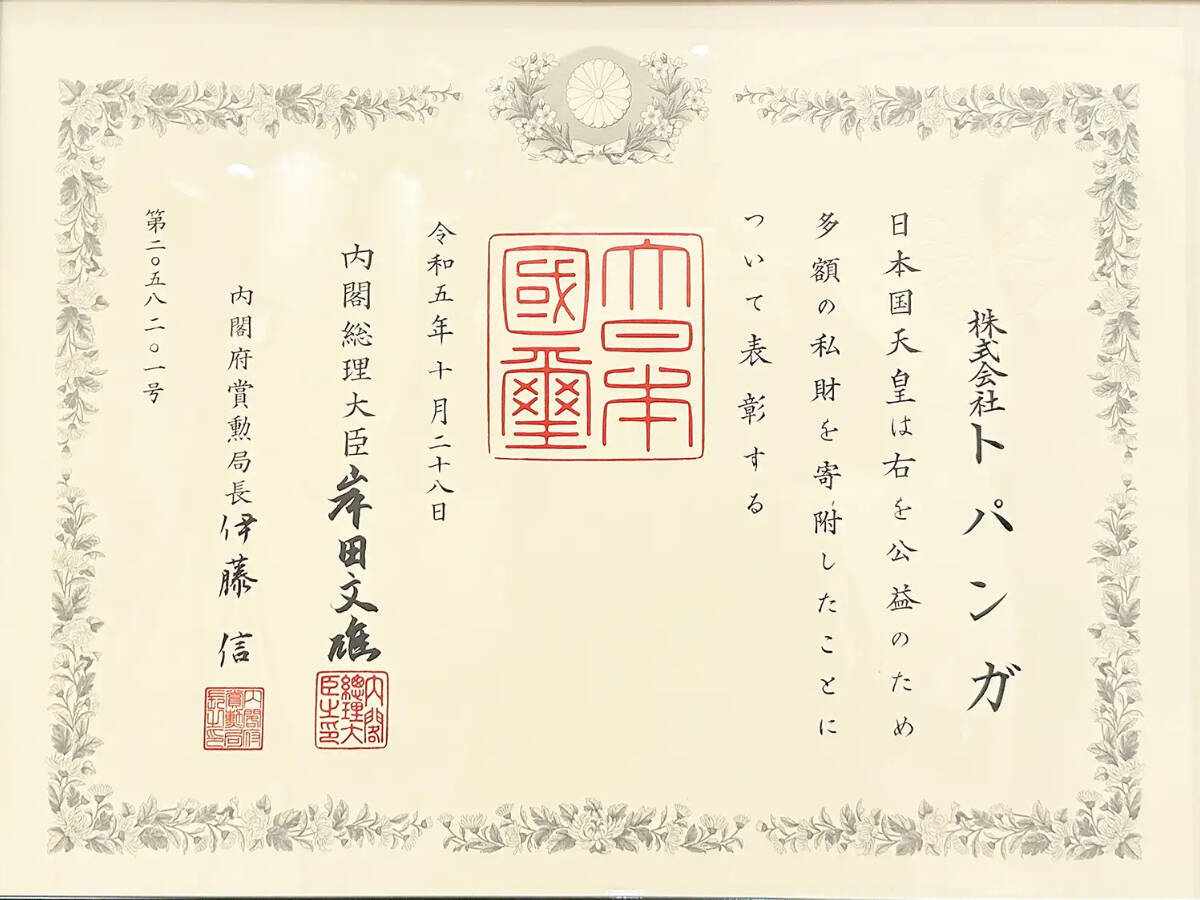 株式会社トパンガ
日本国天皇は右を公益のため
多額の私財を寄附したことに
ついて表彰する
大日本
國璽
令和五年十月二十八日
内閣総理大臣岸田文雄
内閣
總理大
臣之印
内閣府賞勲局長伊藤信
内閣府
賞勳局
長之印
第二〇五八二〇一号